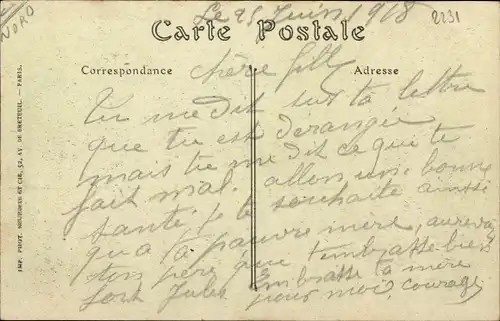 NORD
Le 25 Juin 1918
2231
Carte Postale
Correspondance
Adresse
chère fille
Tu me dit sur ta lettre
que tu est derangée
mais tu me dit ce que te
fait mal. allons une bonne
santé je te souhaite aussi
qua ta pauvre mère, aurevoir
ton père que tembrasse bien
fort Jules Embrasse ta mère
pour moi, courage
IMP. PHOT. NEURDEIN ET CIE, 52, AV. DE BRETEUIL. — PARIS.